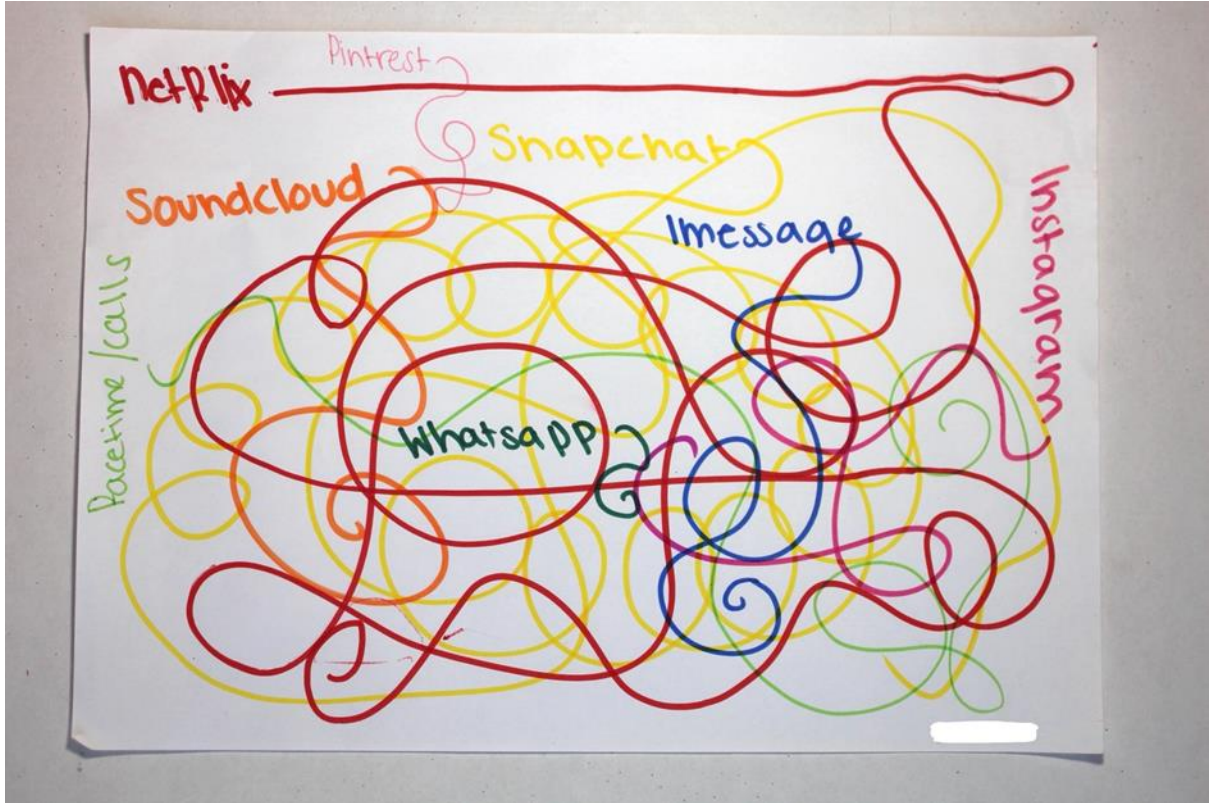 Pintrest
Netflix
Snapchat
Soundcloud
Imessage
Instagram
Facetime/calls
Whatsapp